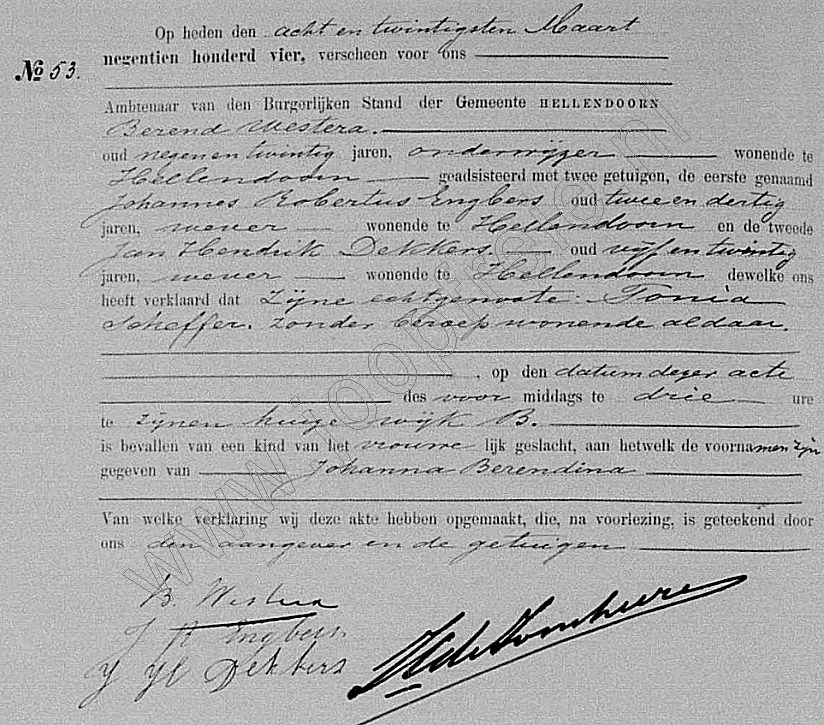 Op heden den acht en twintigsten Maart
negentien honderd vier, verscheen voor ons
No 53.
Ambtenaar van den Burgerlijken Stand der Gemeente HELLENDOORN
Berend Westera.
oud negen en twintig jaren, onderwijzer wonende te
Hellendoorn geadsisteerd met twee getuigen, de eerste genaamd
Johannes Robertus Engbers oud twee en dertig
jaren, wever wonende te Hellendoorn en de tweede
Jan Hendrik Dekkers. oud vijf en twintig
jaren, wever wonende te Hellendoorn dewelke ons
heeft verklaard dat Zijne echtgenoote: Tonia
Scheffer. zonder beroep wonende aldaar.
, op den datum dezer acte
des voor middags te drie ure
te zijnen huize wijk B.
is bevallen van een kind van het vrouwe lijk geslacht, aan hetwelk de voornamen zijn
gegeven van Johanna Berendina
Van welke verklaring wij deze akte hebben opgemaakt, die, na voorlezing, is geteekend door
ons den aangever en de getuigen
B. Westera
J R Engbers
J H Dekkers